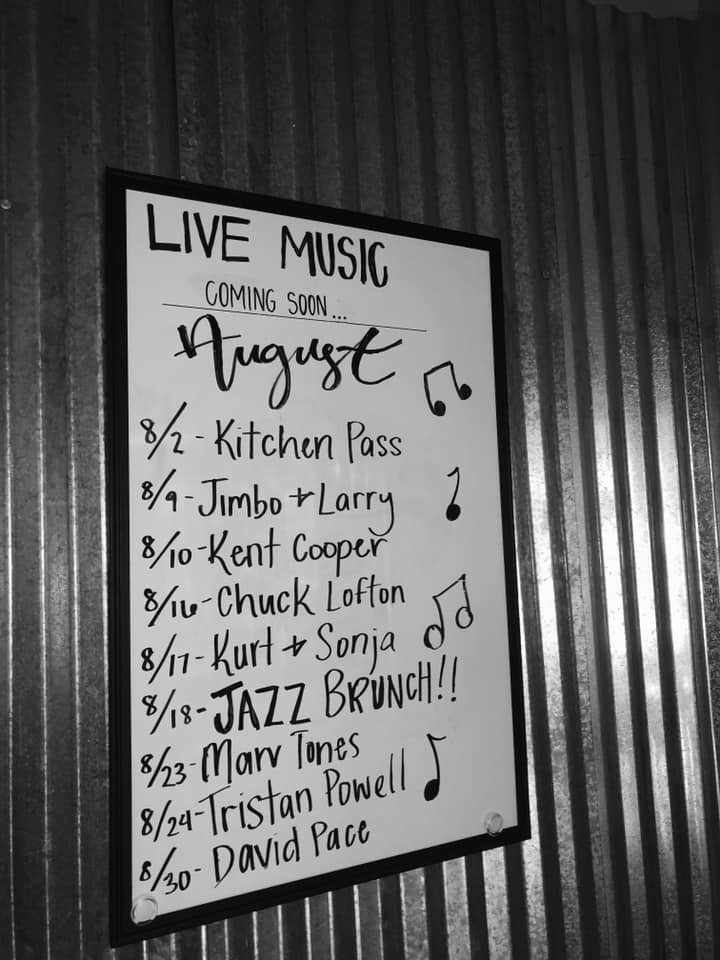 LIVE MUSIC
COMING SOON...
August
8/2 - Kitchen Pass
8/9 - Jimbo + Larry
8/10 - Kent Cooper
8/16 - Chuck Lofton
8/17 - Kurt + Sonja
8/18 - JAZZ BRUNCH!!
8/23 - Marv Tones
8/24 - Tristan Powell
8/30 - David Pace